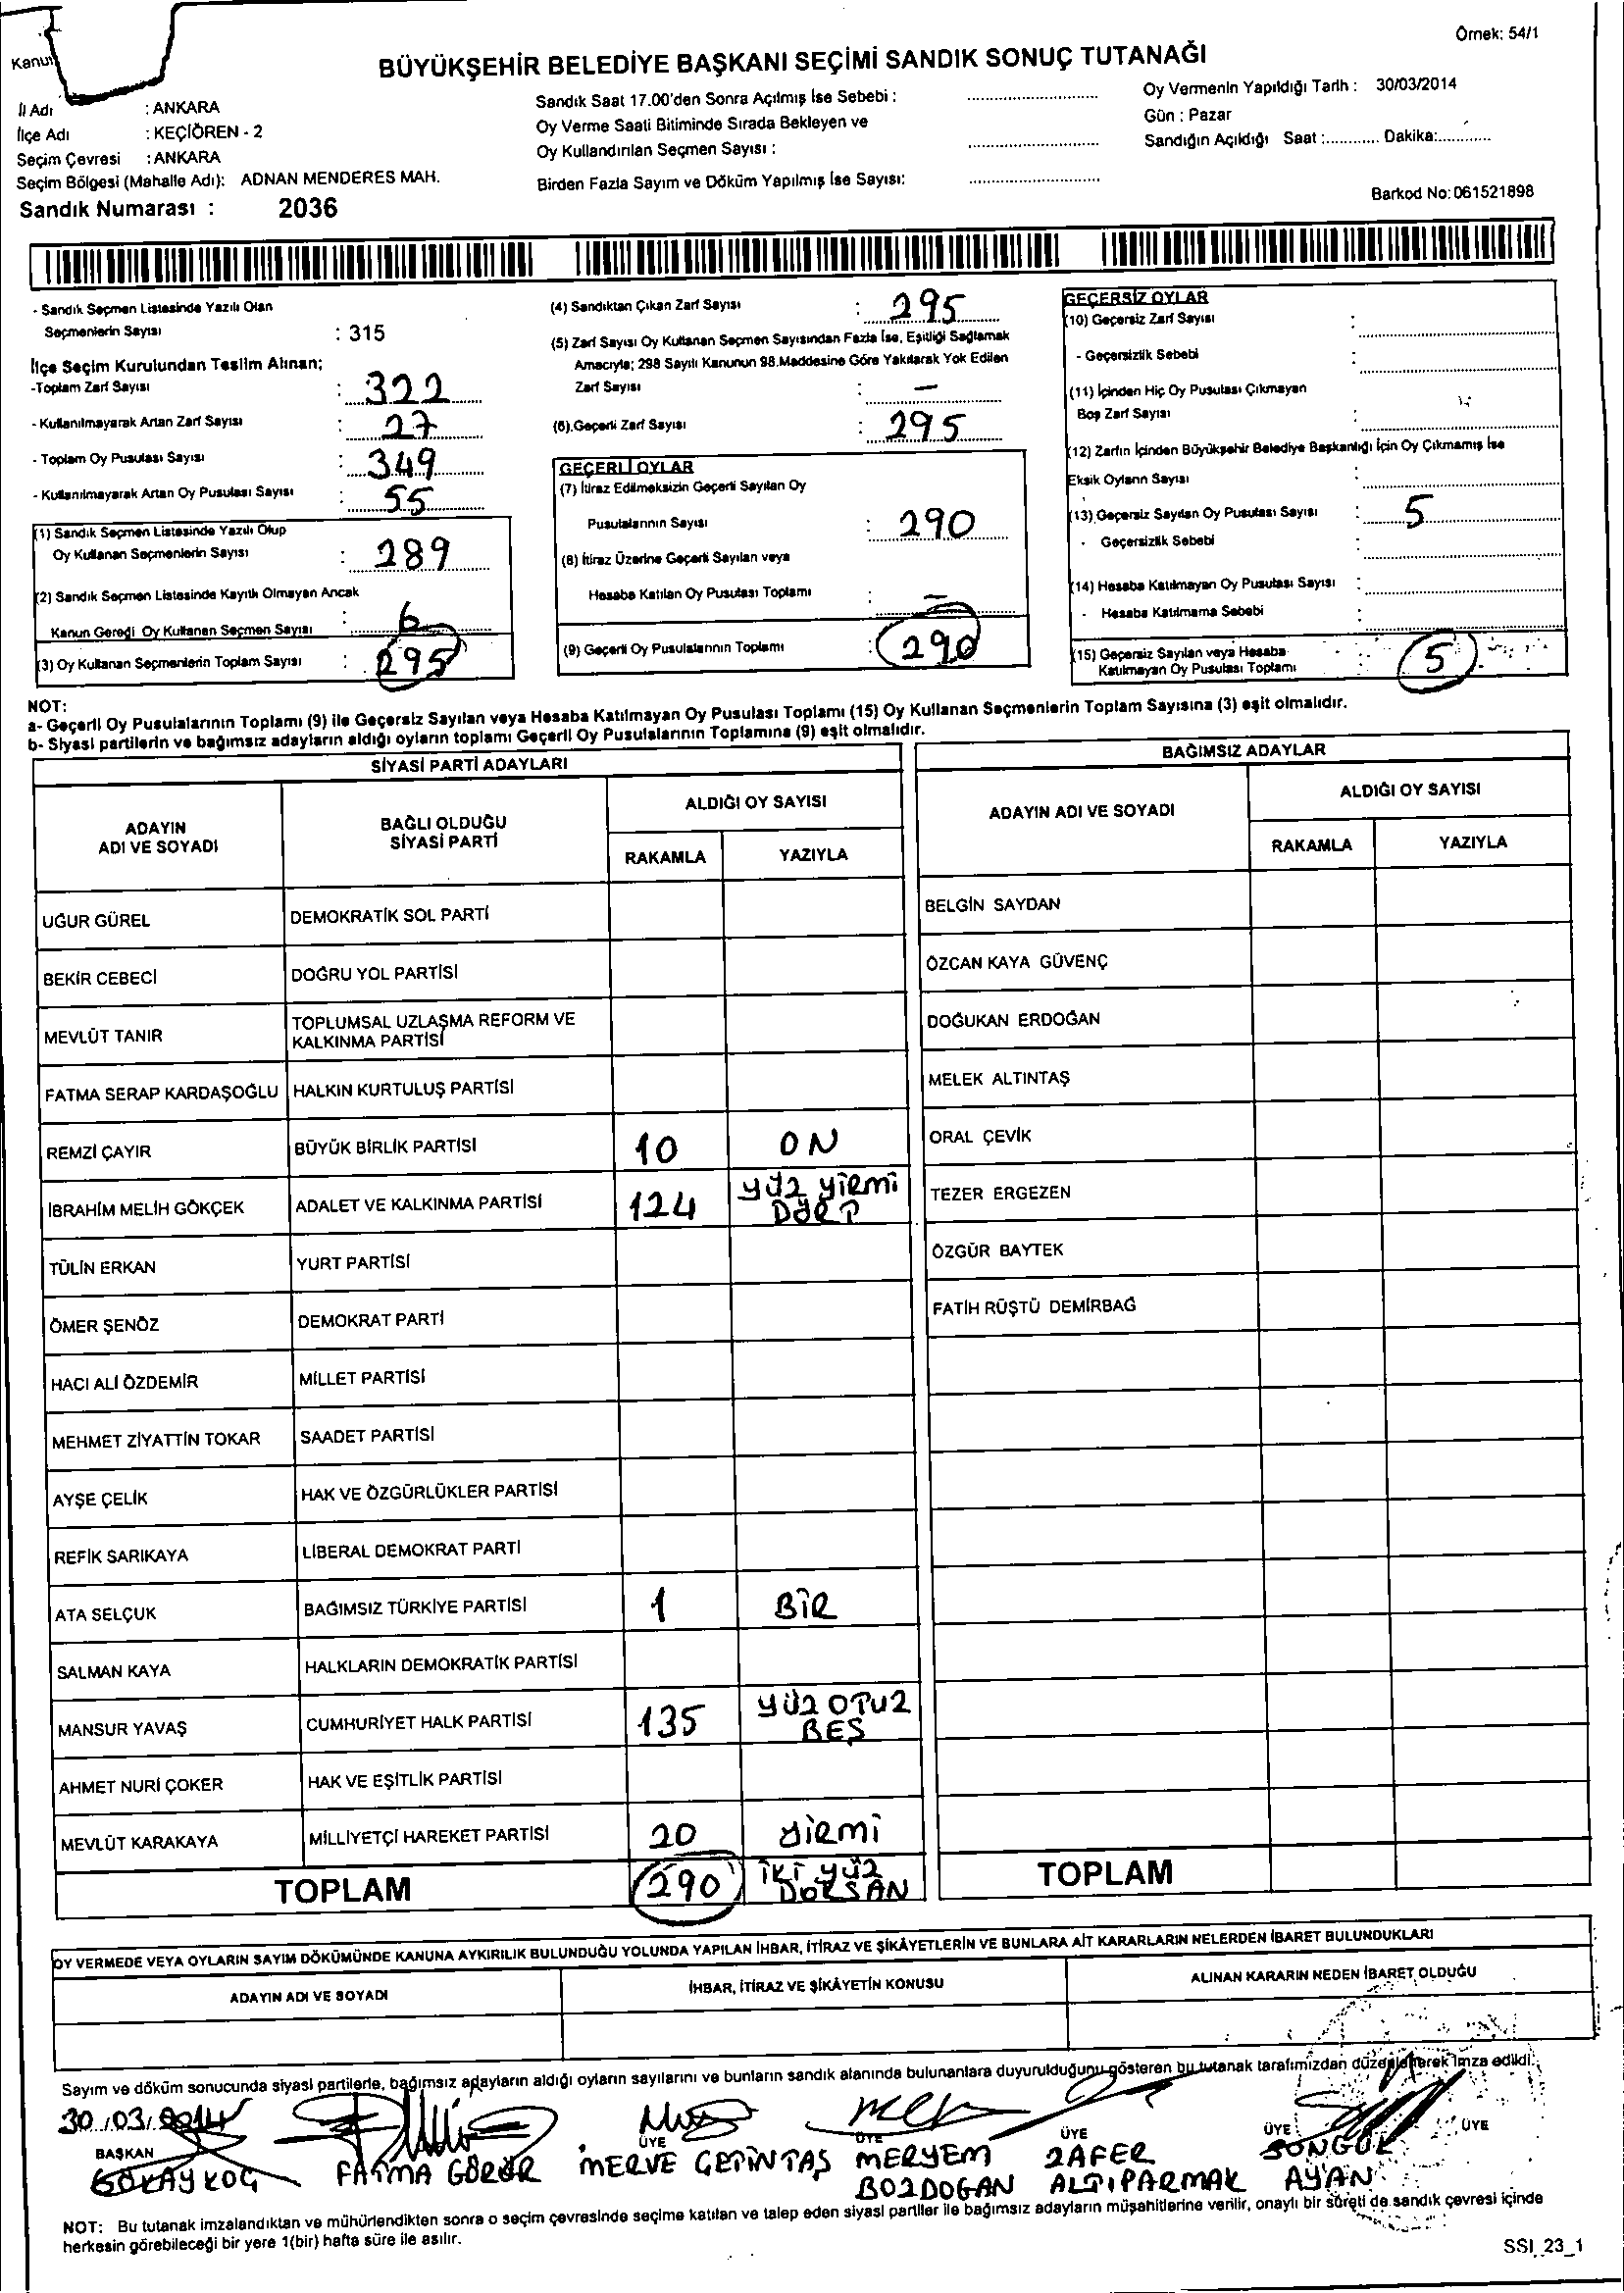 Örnek: 54/1
Kanu
BÜYÜKŞEHİR BELEDİYE BAŞKANI SEÇİMİ SANDIK SONUÇ TUTANAĞI
İl Adı : ANKARA
İlçe Adı : KEÇİÖREN - 2
Seçim Çevresi : ANKARA
Seçim Bölgesi (Mahalle Adı): ADNAN MENDERES MAH.
Sandık Numarası : 2036
Sandık Saat 17.00'den Sonra Açılmış İse Sebebi :
Oy Verme Saati Bitiminde Sırada Bekleyen ve
Oy Kullandırılan Seçmen Sayısı :
Birden Fazla Sayım ve Döküm Yapılmış İse Sayısı:
Oy Vermenin Yapıldığı Tarih : 30/03/2014
Gün : Pazar
Sandığın Açıldığı Saat :............ Dakika:............
Barkod No:061521898
- Sandık Seçmen Listesinde Yazılı Olan
Seçmenlerin Sayısı : 315
İlçe Seçim Kurulundan Teslim Alınan;
-Toplam Zarf Sayısı : 322
- Kullanılmayarak Artan Zarf Sayısı : 27
- Toplam Oy Pusulası Sayısı : 349
- Kullanılmayarak Artan Oy Pusulası Sayısı : 55
(1) Sandık Seçmen Listesinde Yazılı Olup
Oy Kullanan Seçmenlerin Sayısı : 289
(2) Sandık Seçmen Listesinde Kayıtlı Olmayan Ancak
Kanun Gereği Oy Kullanan Seçmen Sayısı : 6
(3) Oy Kullanan Seçmenlerin Toplam Sayısı : 295
(4) Sandıktan Çıkan Zarf Sayısı : 295
(5) Zarf Sayısı Oy Kullanan Seçmen Sayısından Fazla İse, Eşitliği Sağlamak
Amacıyla; 298 Sayılı Kanunun 98.Maddesine Göre Yakılarak Yok Edilen
Zarf Sayısı : -
(6).Geçerli Zarf Sayısı : 295
GEÇERLİ OYLAR
(7) İtiraz Edilmeksizin Geçerli Sayılan Oy
Pusulalarının Sayısı : 290
(8) İtiraz Üzerine Geçerli Sayılan veya
Hesaba Katılan Oy Pusulası Toplamı : -
(9) Geçerli Oy Pusulalarının Toplamı : 290
GEÇERSİZ OYLAR
(10) Geçersiz Zarf Sayısı :
- Geçersizlik Sebebi :
(11) İçinden Hiç Oy Pusulası Çıkmayan
Boş Zarf Sayısı :
(12) Zarfın İçinden Büyükşehir Belediye Başkanlığı İçin Oy Çıkmamış İse
Eksik Oyların Sayısı :
(13) Geçersiz Sayılan Oy Pusulası Sayısı : 5
- Geçersizlik Sebebi :
(14) Hesaba Katılmayan Oy Pusulası Sayısı :
- Hesaba Katılmama Sebebi :
(15) Geçersiz Sayılan veya Hesaba
Katılmayan Oy Pusulası Toplamı : 5
NOT:
a- Geçerli Oy Pusulalarının Toplamı (9) ile Geçersiz Sayılan veya Hesaba Katılmayan Oy Pusulası Toplamı (15) Oy Kullanan Seçmenlerin Toplam Sayısına (3) eşit olmalıdır.
b- Siyasi partilerin ve bağımsız adayların aldığı oyların toplamı Geçerli Oy Pusulalarının Toplamına (9) eşit olmalıdır.
SİYASİ PARTİ ADAYLARI
ADAYIN
ADI VE SOYADI
BAĞLI OLDUĞU
SİYASİ PARTİ
ALDIĞI OY SAYISI
RAKAMLA YAZIYLA
UĞUR GÜREL DEMOKRATİK SOL PARTİ
BEKİR CEBECİ DOĞRU YOL PARTİSİ
MEVLÜT TANIR TOPLUMSAL UZLAŞMA REFORM VE
KALKINMA PARTİSİ
FATMA SERAP KARDAŞOĞLU HALKIN KURTULUŞ PARTİSİ
REMZİ ÇAYIR BÜYÜK BİRLİK PARTİSİ 10 ON
İBRAHİM MELİH GÖKÇEK ADALET VE KALKINMA PARTİSİ 124 YÜZ YİRMİ
DÖRT
TÜLİN ERKAN YURT PARTİSİ
ÖMER ŞENÖZ DEMOKRAT PARTİ
HACI ALİ ÖZDEMİR MİLLET PARTİSİ
MEHMET ZİYATTİN TOKAR SAADET PARTİSİ
AYŞE ÇELİK HAK VE ÖZGÜRLÜKLER PARTİSİ
REFİK SARIKAYA LİBERAL DEMOKRAT PARTİ
ATA SELÇUK BAĞIMSIZ TÜRKİYE PARTİSİ 1 BİR
SALMAN KAYA HALKLARIN DEMOKRATİK PARTİSİ
MANSUR YAVAŞ CUMHURİYET HALK PARTİSİ 135 YÜZ OTUZ
BEŞ
AHMET NURİ ÇOKER HAK VE EŞİTLİK PARTİSİ
MEVLÜT KARAKAYA MİLLİYETÇİ HAREKET PARTİSİ 20 YİRMİ
TOPLAM 290 İKİ YÜZ
DOKSAN
BAĞIMSIZ ADAYLAR
ADAYIN ADI VE SOYADI
ALDIĞI OY SAYISI
RAKAMLA YAZIYLA
BELGİN SAYDAN
ÖZCAN KAYA GÜVENÇ
DOĞUKAN ERDOĞAN
MELEK ALTINTAŞ
ORAL ÇEVİK
TEZER ERGEZEN
ÖZGÜR BAYTEK
FATİH RÜŞTÜ DEMİRBAĞ
TOPLAM
OY VERMEDE VEYA OYLARIN SAYIM DÖKÜMÜNDE KANUNA AYKIRILIK BULUNDUĞU YOLUNDA YAPILAN İHBAR, İTİRAZ VE ŞİKÂYETLERİN VE BUNLARA AİT KARARLARIN NELERDEN İBARET BULUNDUKLARI
ADAYIN ADI VE SOYADI İHBAR, İTİRAZ VE ŞİKÂYETİN KONUSU ALINAN KARARIN NEDEN İBARET OLDUĞU
Sayım ve döküm sonucunda siyasi partilerle, bağımsız adayların aldığı oyların sayılarını ve bunların sandık alanında bulunanlara duyurulduğunu gösteren bu tutanak tarafımızdan düzenlenerek imza edildi.
30/03/2014
BAŞKAN ÜYE ÜYE ÜYE ÜYE ÜYE
GÖKAY KOÇ FATMA GÖRÜR MERVE ÇETİNTAŞ MERYEM ZAFER SONGÜL
BOZDOGAN ALTIPARMAK AYAN
NOT: Bu tutanak imzalandıktan ve mühürlendikten sonra o seçim çevresinde seçime katılan ve talep eden siyasi partiler ile bağımsız adayların müşahitlerine verilir, onaylı bir sûreti de sandık çevresi içinde
herkesin görebileceği bir yere 1(bir) hafta süre ile asılır.
SSI_23_1